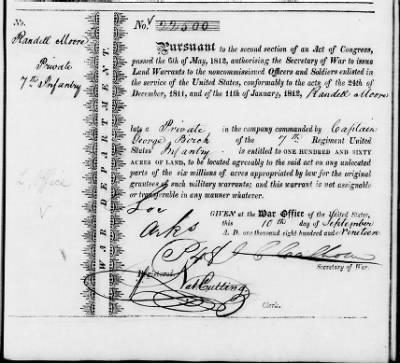 No.
No. 22500
Randell Moore
Private
7th Infantry
WAR DEPARTMENT.
Pursuant to the second section of an Act of Congress,
passed the 6th of May, 1812, authorising the Secretary of War to issue
Land Warrants to the noncommissioned Officers and Soldiers enlisted in
the service of the United States, conformably to the acts of the 24th of
December, 1811, and of the 11th of January, 1812, Randell Moore
late a Private in the company commanded by Captain
George Birch of the 7th Regiment United
States' Infantry is entitled to ONE HUNDRED AND SIXTY
ACRES OF LAND, to be located agreeably to the said act on any unlocated
parts of the six millions of acres appropriated by law for the original
grantees of such military warrants; and this warrant is not assignable
or transferable in any manner whatever.
GIVEN at the War Office of the United States,
this 10th day of September
A. D. one thousand eight hundred and Nineteen
Arks
J C Calhoun
Secretary of War.
Nat Cutting
Clerk.